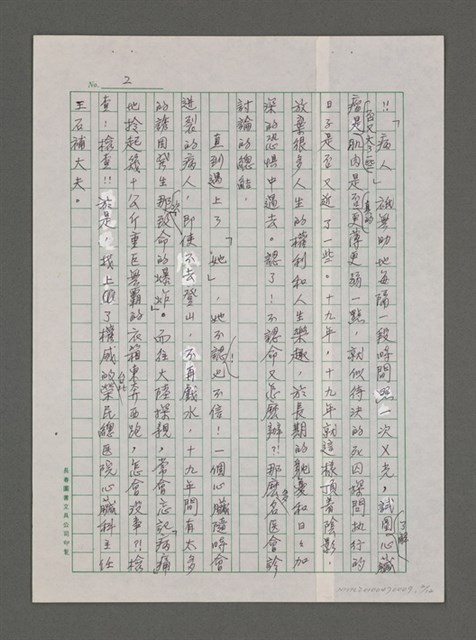 No. 2
!!「病人」就無助地每隔一段時間照一次X光,試圖了解心臟
瘤是否又大了些,肌肉是否真的更薄更弱一點,就似待決的死囚探問執行的
日子是否又近了一些。十九年,十九年就這樣頂著陰影,
放棄很多人生的權利和人生樂趣,於長期的躭憂和日日加
深的恐惧中過去。認了!不認命又怎麽辦?!那麽多名医會診
討論的總結。
直到遇上了「她」,她不認也不信!一個心臟隨時會
迸裂的病人,即使不去登山,不再戲水,十九年間有太多
的誘因發生那致命的「爆炸」。而往大陸探親,常會忘記「病痛」
地拎起幾十公斤重巨無霸的衣箱東奔西跑,怎會沒事?!檢
查!檢查!!於是,找上了權威的台北榮民總医院心臟科主任
王石補大夫。
長春圖書文具公司印製